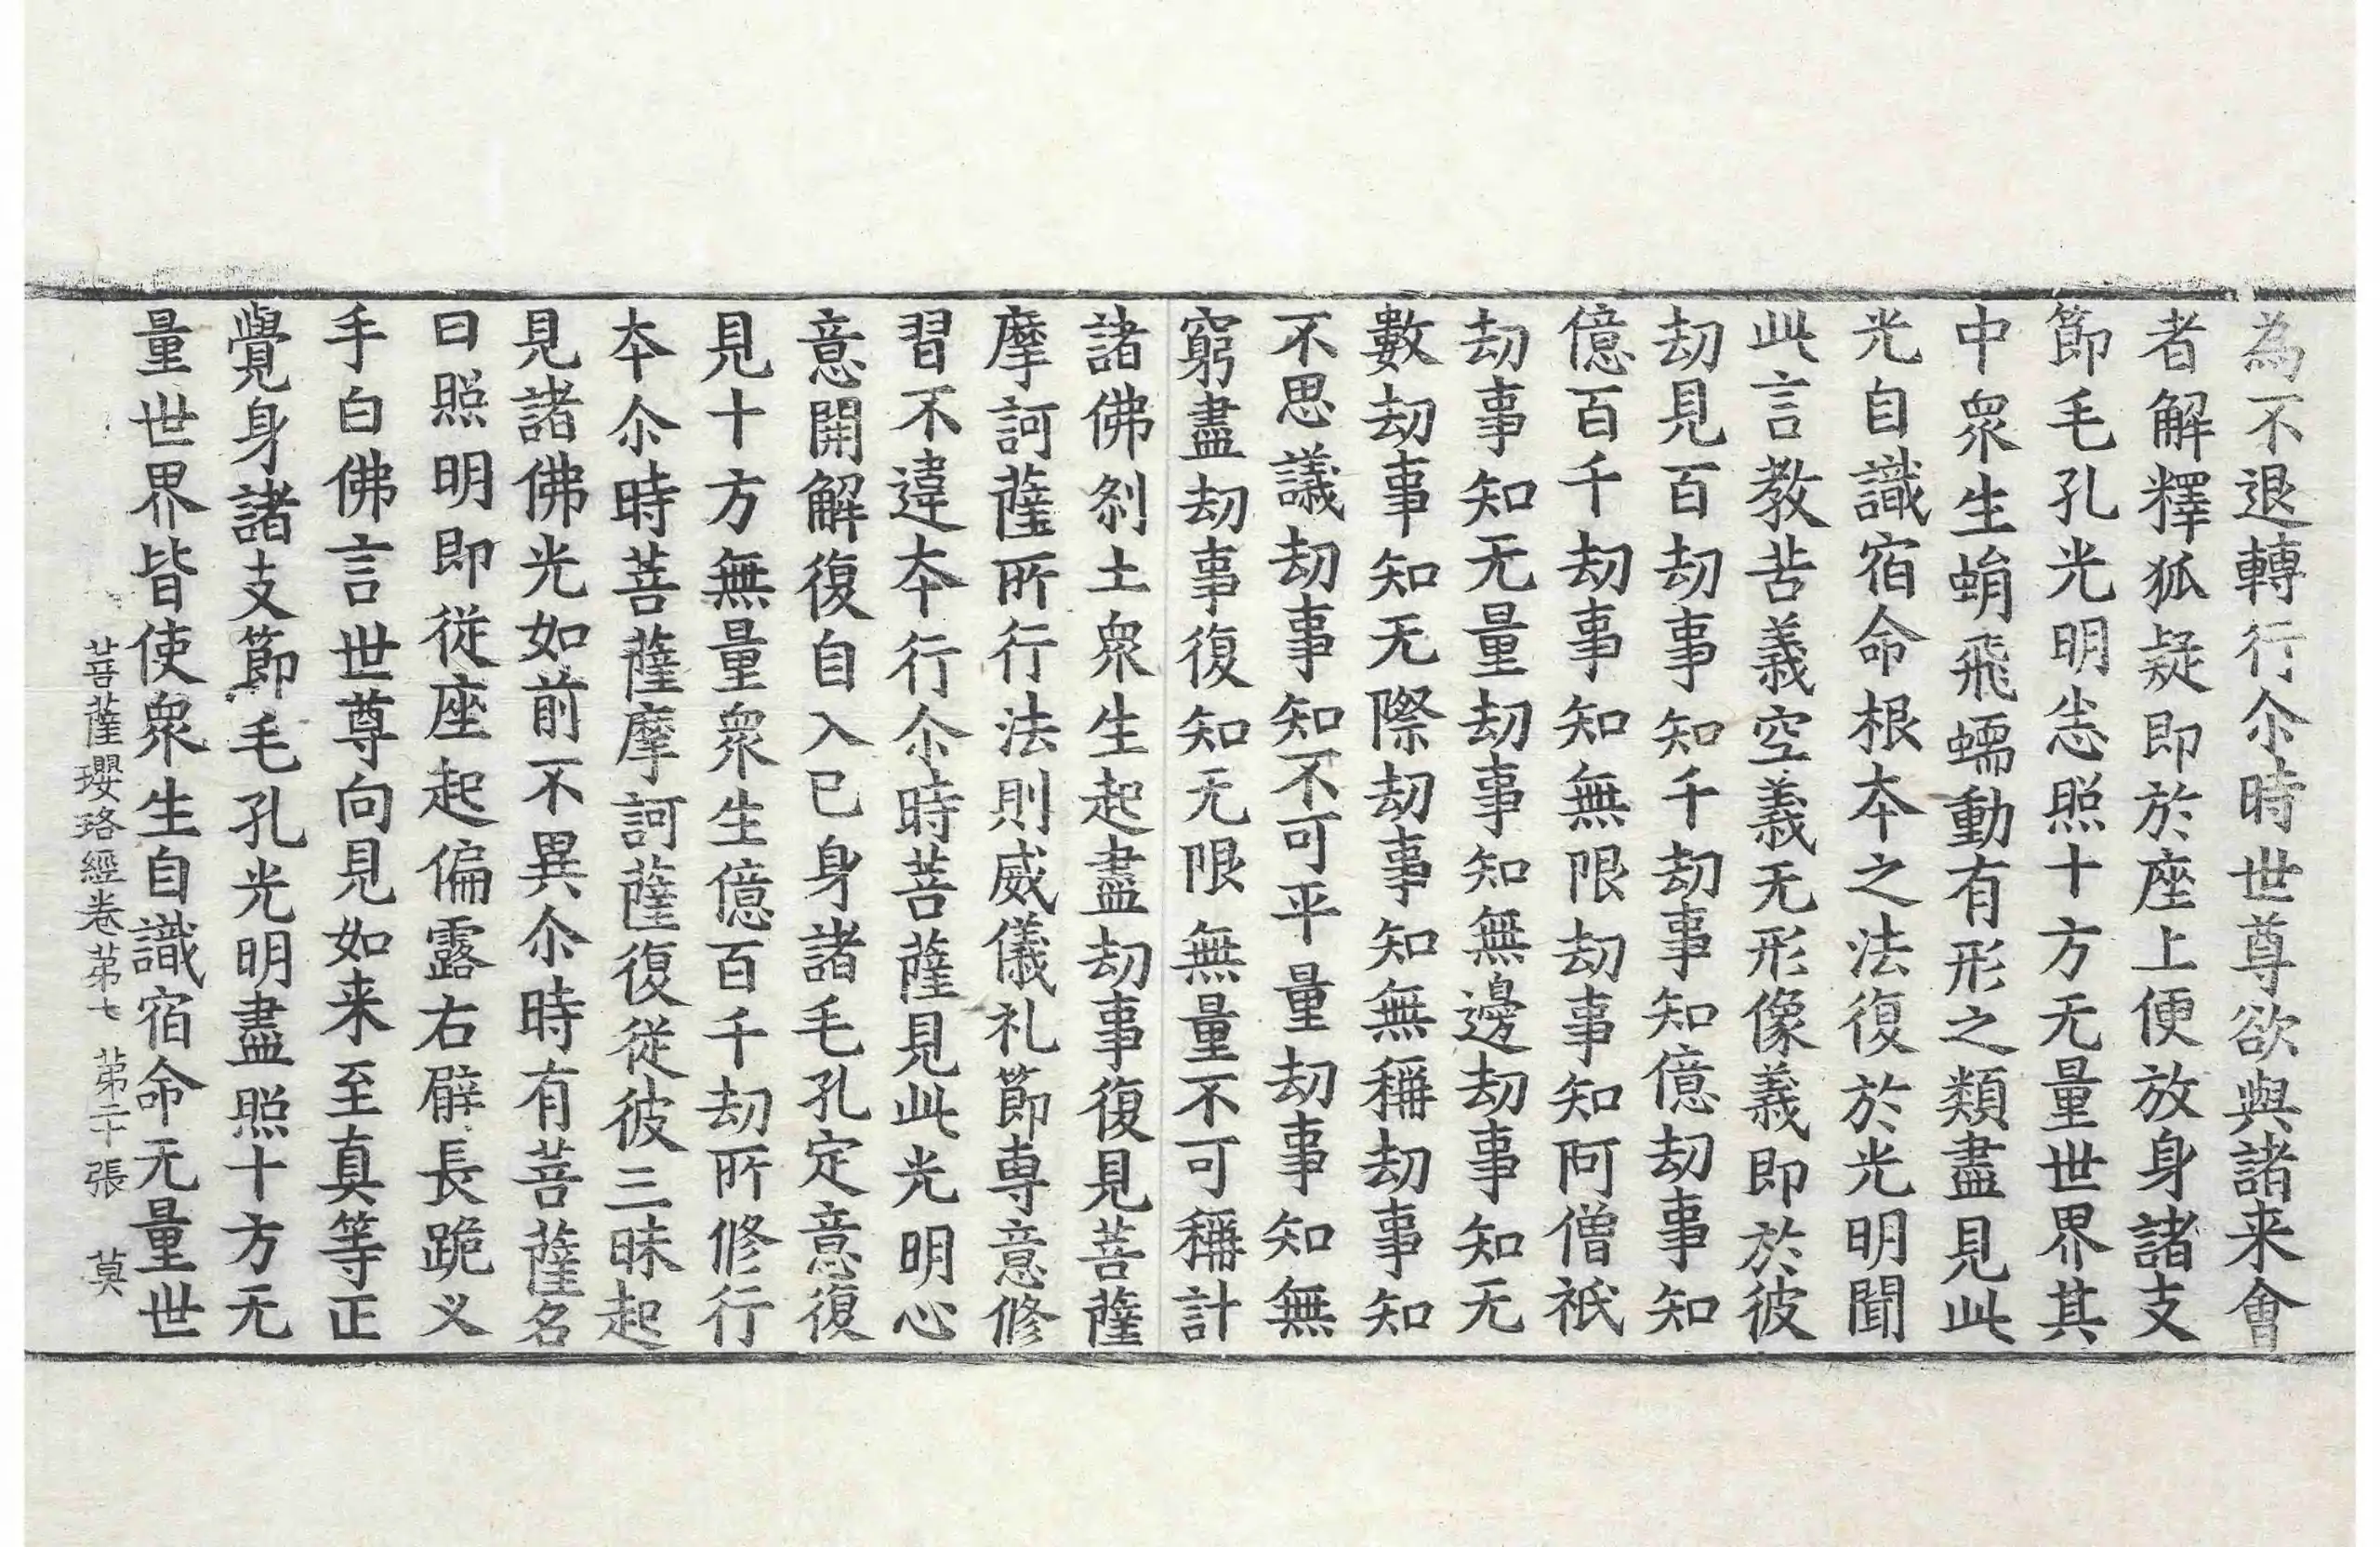 為不退轉行尒時世尊欲與諸来會
者解釋狐疑即於座上便放身諸支
節毛孔光明悉照十方无量世界其
中衆生蜎飛蠕動有形之類盡見此
光自識宿命根本之法復於光明聞
此言教苦義空義无形像義即於彼
劫見百劫事知千劫事知億劫事知
億百千劫事知無限劫事知阿僧祇
劫事知无量劫事知無邊劫事知无
數劫事知无際劫事知無稱劫事知
不思議劫事知不可平量劫事知無
窮盡劫事復知无限無量不可稱計
諸佛刹土衆生起盡劫事復見菩薩
摩訶薩所行法則威儀礼節専意修
習不違本行尒時菩薩見此光明心
意開解復自入已身諸毛孔定意復
見十方無量衆生億百千劫所修行
本尒時菩薩摩訶薩復從彼三昧起
見諸佛光如前不異尒時有菩薩名
曰照明即從座起偏露右臂長跪义
手白佛言世尊向見如来至真等正
覺身諸支節毛孔光明盡照十方无
量世界皆使衆生自識宿命无量世
菩薩瓔珞經卷苐七 苐二十張 莫